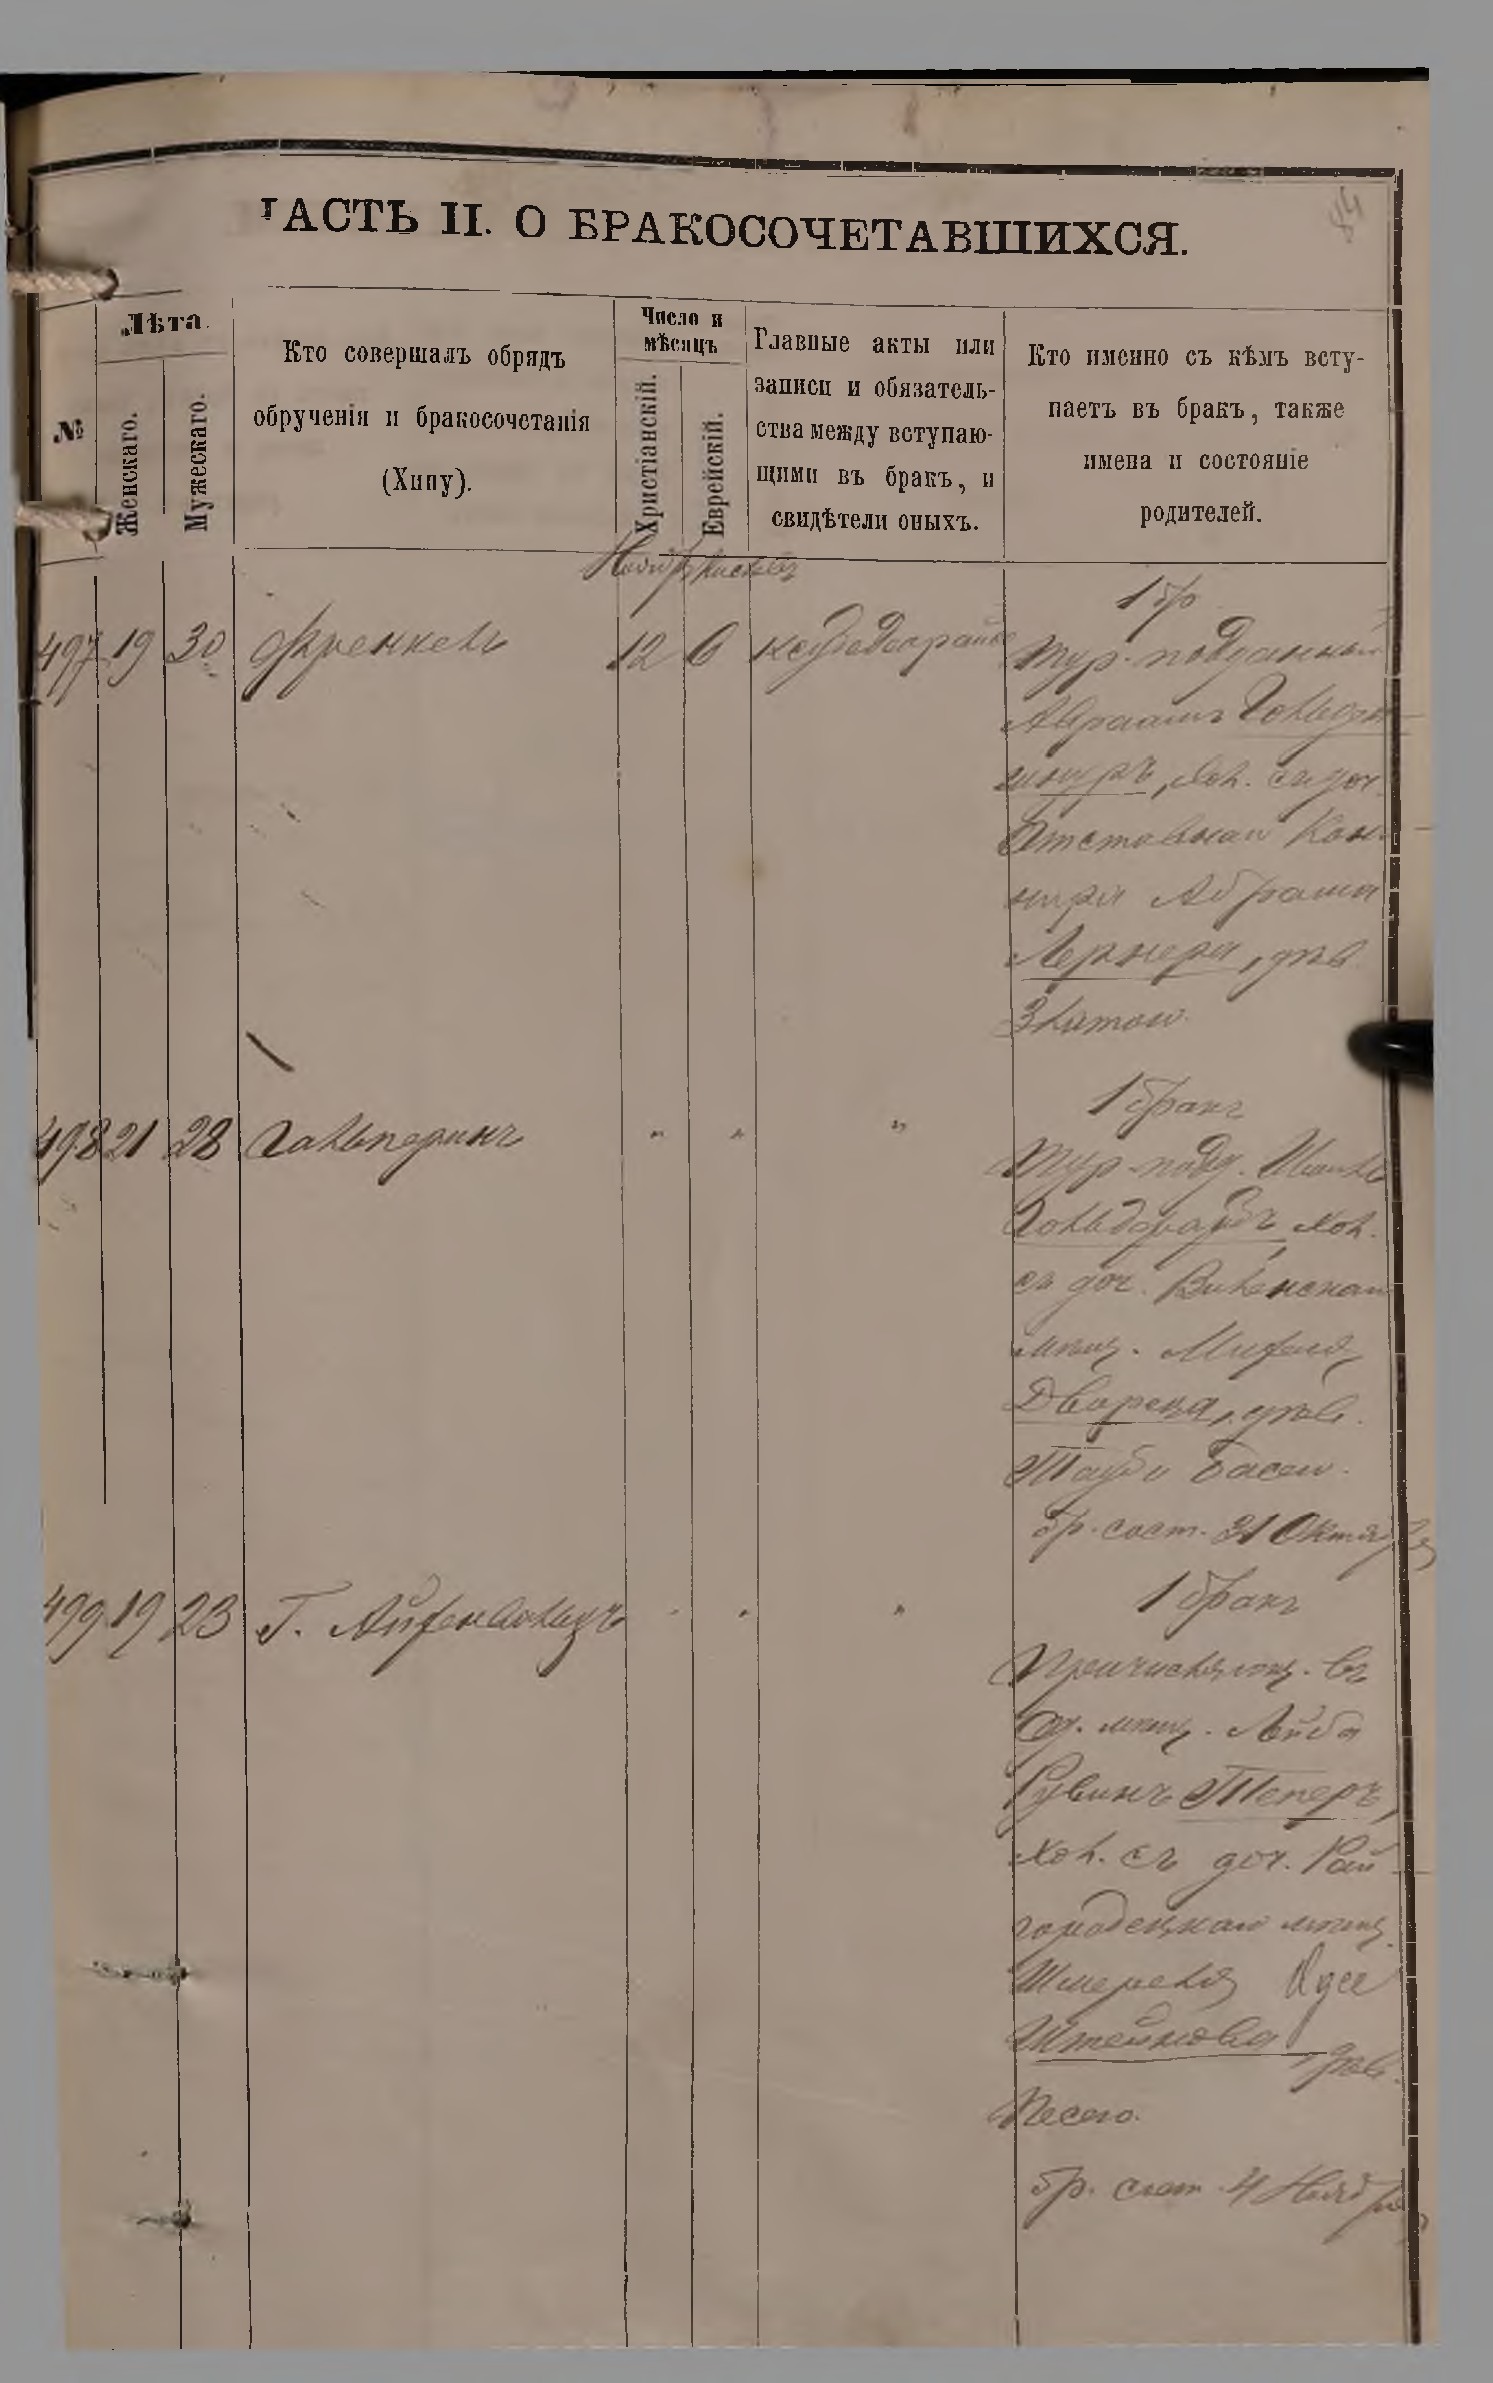 84
ЧАСТЬ II. О БРАКОСОЧЕТАВШИХСЯ.
№
Лѣта.
Женскаго.
Мужескаго.
Кто совершалъ обрядъ
обрученія и бракосочетанія
(Хипу).
Число и
мѣсяцъ
Христіанскій.
Еврейскій.
Главные акты или
записи и обязатель-
ства между вступаю-
щими въ бракъ, и
свидѣтели оныхъ.
Кто именно съ кѣмъ всту-
паетъ въ бракъ, также
имена и состояніе
родителей.
Ноябр Кислев
497 19 30 Френкель 12 6
1 бр
Тур. подданный
Авраамъ Гольден-
шнуръ, хол. съ доч.
Отставнаго Кан-
нира Абрама
Лернера, дѣв.
Златою.
498 21 28 Гальперинъ " " "
1 бракъ
Тур. подд.
хол.
съ доч. Виленскаго
мѣщ.
Двореца, дѣв.
Тауба Басею.
бр. сост. 31 Октября
499 19 23 Г. Айзенвальдъ " " "
1 бракъ
Причисляющ. въ
Од. мѣщ. Лейба
Рувинъ Теперъ,
хол. съ доч. Рай-
городецкаго мѣщ.
Шмереля
Штейнова, дѣв.
Песею.
бр. сост. 4 Ноября